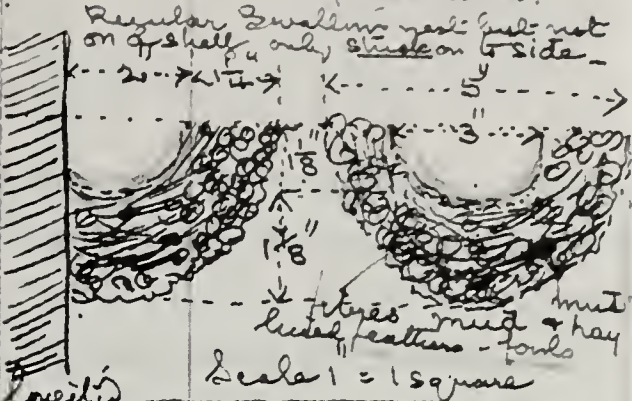 Regular Swallows nest but not
on a shelf only stuck on to side
2" 1 1/4" 5"
3"
1 1/8"
1 7/8"
mud
mud + hay
lined feathers - fowls
Scale 1" = 1 square